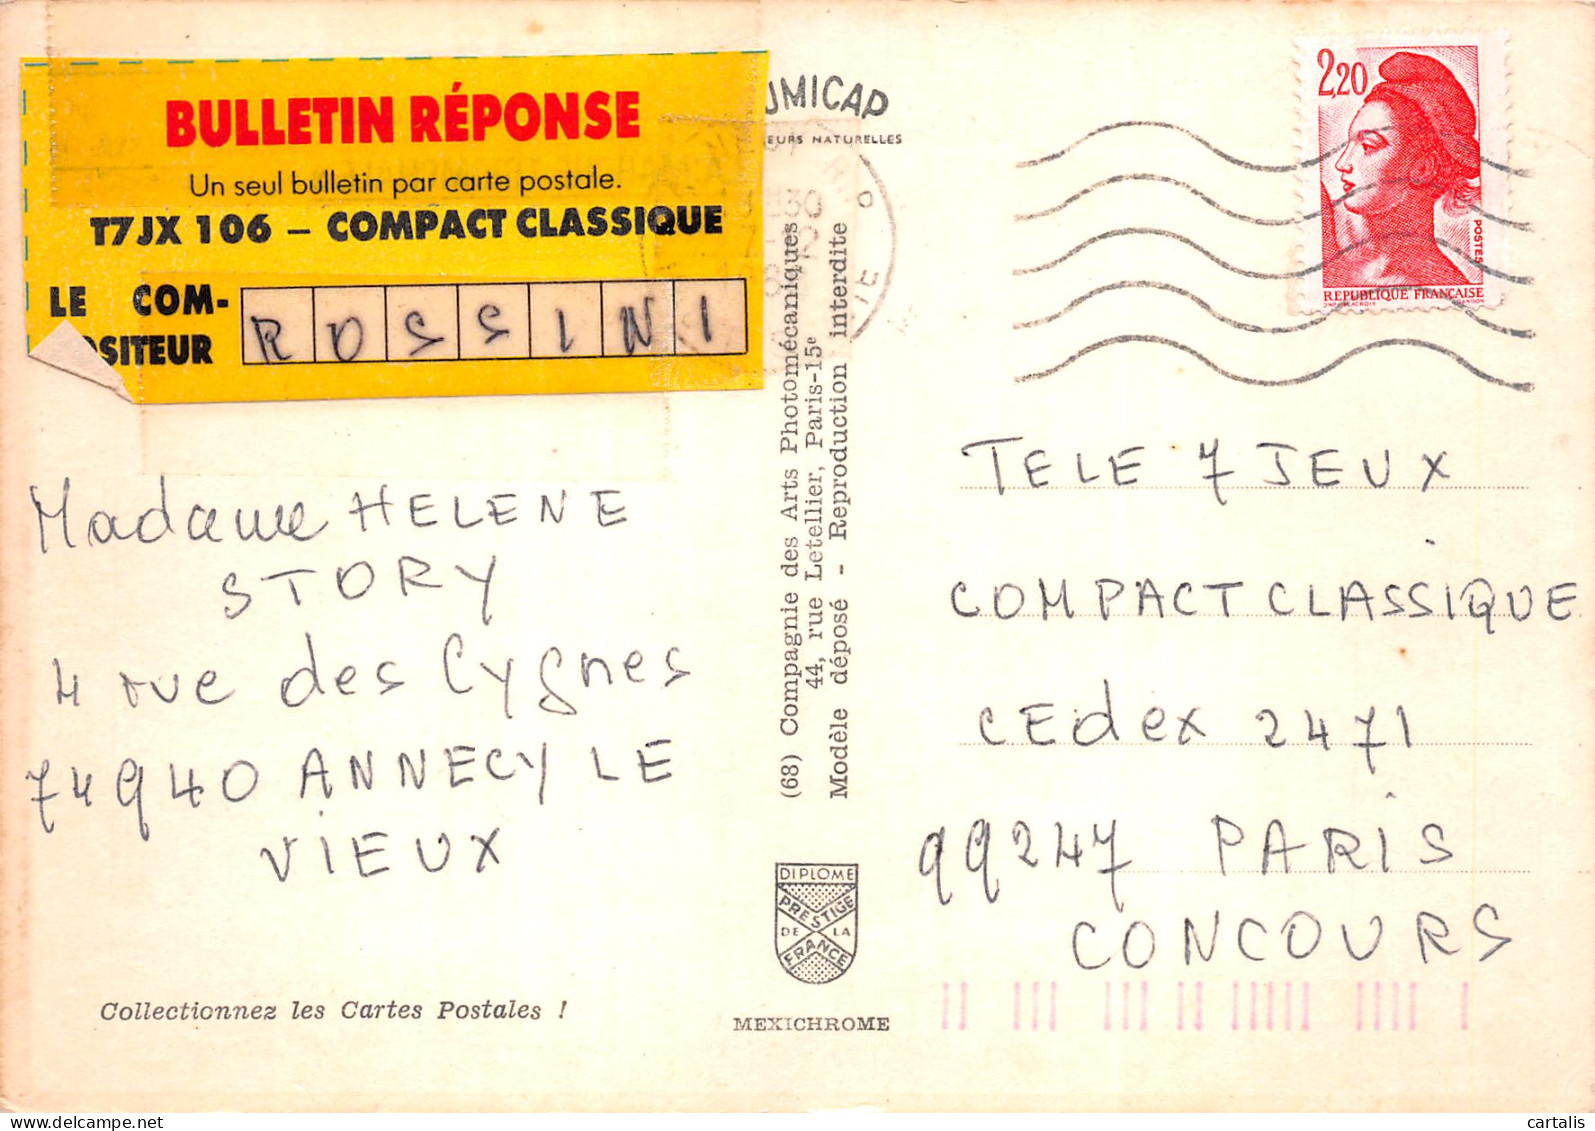 BULLETIN RÉPONSE
Un seul bulletin par carte postale.
T7JX 106 – COMPACT CLASSIQUE
LE COM-
OSITEUR
ROSSINI
Madame HELENE
STORY
4 rue des Cygnes
74940 ANNECY LE
VIEUX
Collectionnez les Cartes Postales !
UMICAP
EURS NATURELLES
(68) Compagnie des Arts Photomécaniques
44, rue Letellier, Paris-15e
Modèle déposé - Reproduction interdite
DIPLOME
PRESTIGE
DE LA
FRANCE
MEXICHROME
2,20
POSTES
REPUBLIQUE FRANÇAISE
TELE 7 JEUX
COMPACT CLASSIQUE
CEdex 2471
99247 PARIS
CONCOURS
cartalis | delcampe.net